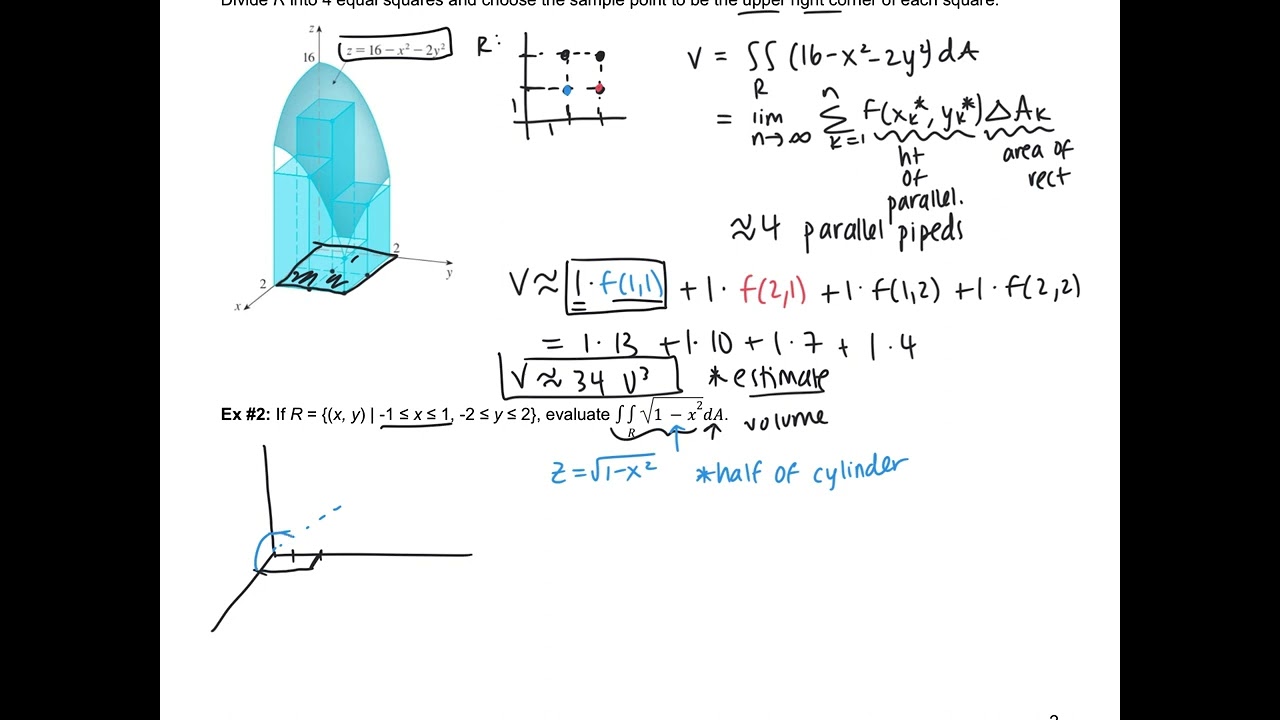 Divide R into 4 equal squares and choose the sample point to be the upper right corner of each square.
z
16
z = 16 − x² − 2y²
2
2
y
x
R:
1
1
V = ∬ (16-x²-2y²)dA
R
= lim n→∞ n Σ k=1 f(xₖ*, yₖ*) ΔAₖ
ht
of
parallel.
area of
rect
≈ 4 parallel pipeds
V ≈ 1· f(1,1) + 1· f(2,1) + 1· f(1,2) + 1· f(2,2)
= 1·13 + 1·10 + 1·7 + 1·4
V ≈ 34 U³ *estimate
volume
Ex #2: If R = {(x, y) | -1 ≤ x ≤ 1, -2 ≤ y ≤ 2}, evaluate ∬ √(1 − x²) dA.
R
z = √(1-x²) *half of cylinder
2